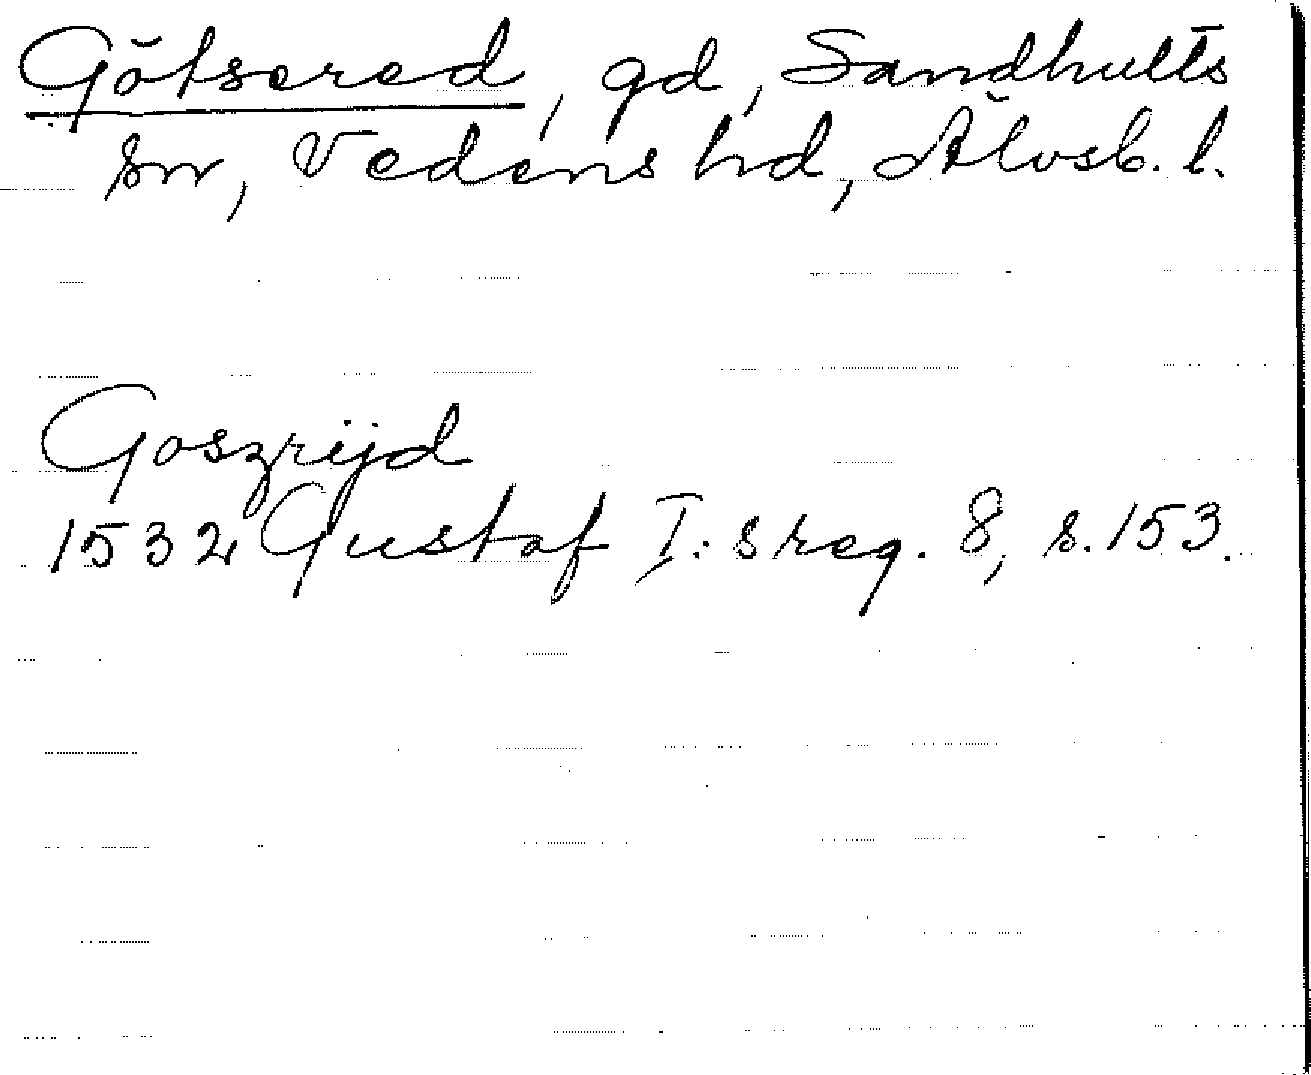 Götsered, gd, Sandhults
sn, Vedens hd, Älvsb. l.
Goszrijd
1532 Gustaf I:s reg. 8, s. 153.